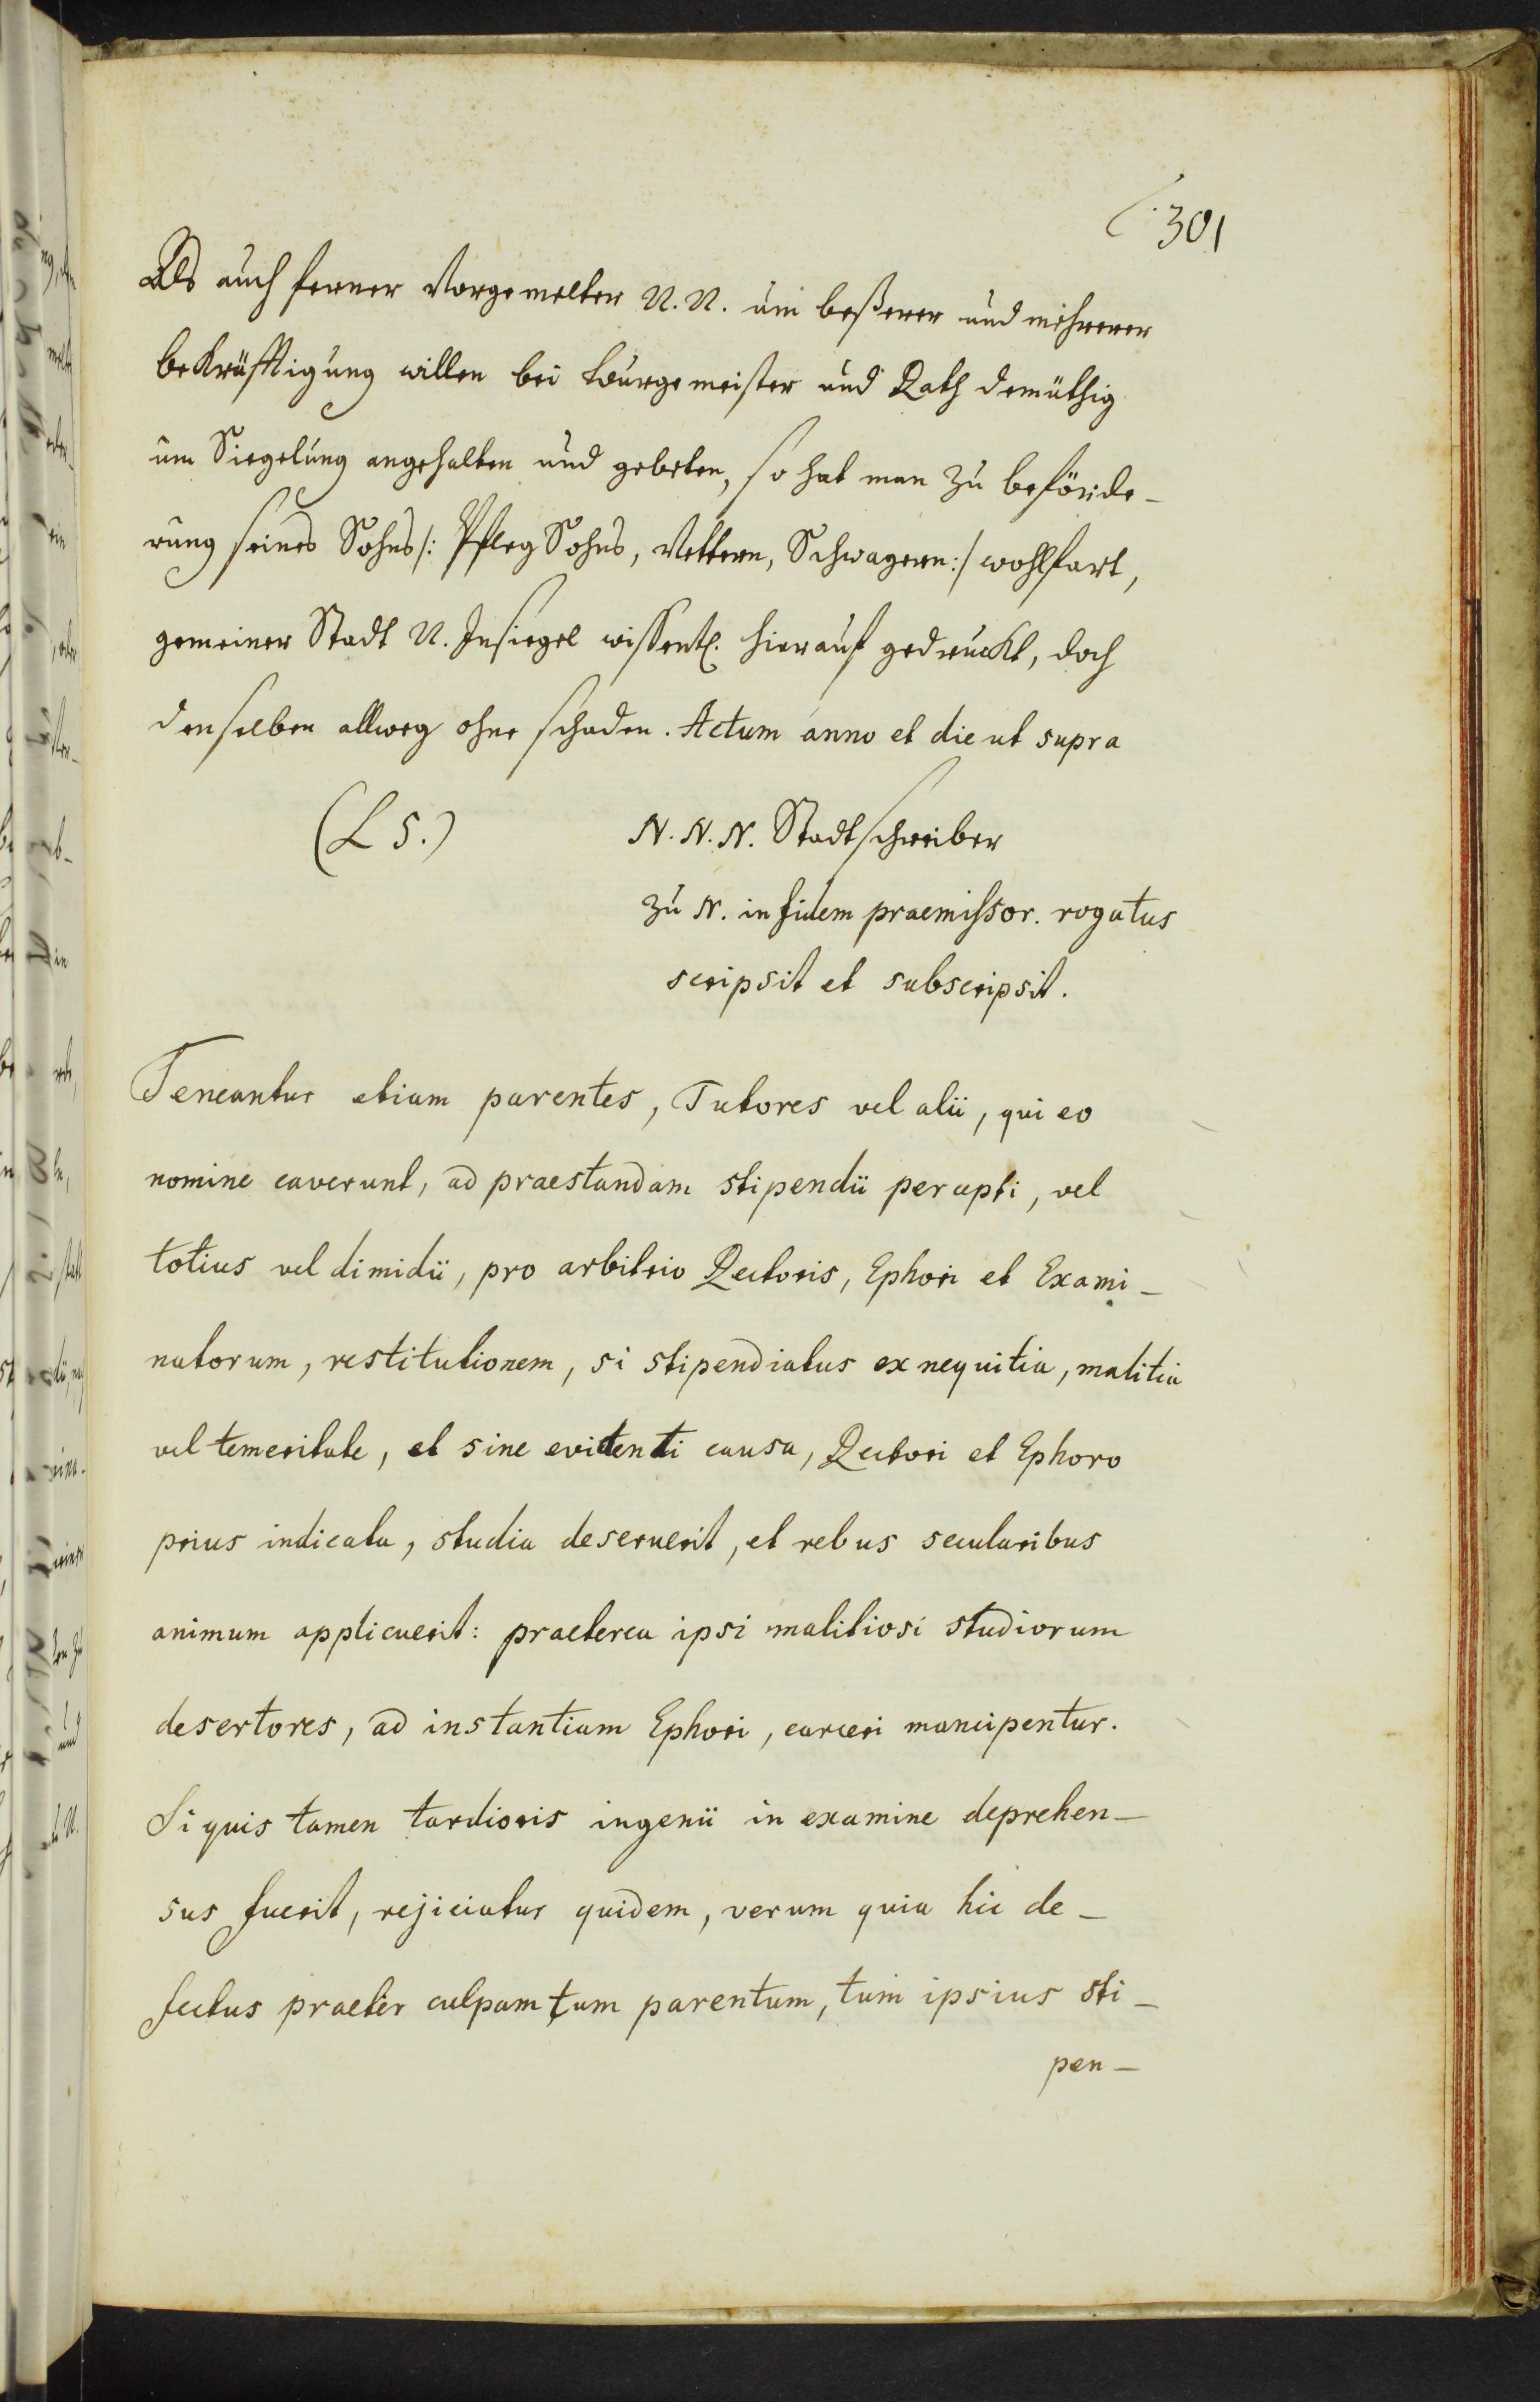 301
Als auch ferner Vorgemelter N. N. um beßerer und mehrerer
bekräfftigung willen bei burgemeister und Rath demüthig
um Siegelung angehalten und gebeten, so hat man zu beförde-
rung seines Sohns /: PflegSohns, Vettern, Schwagern :/ wohlfart,
gemeiner Stadt N. Insiegel wissentl. hierauf gedruckt, doch
denselben allweg ohne schaden. Actum anno et die ut supra
(L S.) N. N. N. Stadtschreiber
zu N. in fidem praemissor. rogatus
scripsit et subscripsit.
Teneantur etiam parentes, Tutores vel alii, qui eo
nomine caverunt, ad praestandam stipendii percepti, vel
totius vel dimidii, pro arbitrio Rectoris, Ephori et Exami-
natorum, restitutionem, si stipendiatus ex nequitia, malitia
vel temeritate, et sine evidenti causa, Rectori et Ephoro
prius indicata, studia deseruerit, et rebus secularibus
animum applicuerit: praeterea ipsi malitiosi studiorum
desertores, ad instantiam Ephori, carceri mancipentur.
Si quis tamen tardioris ingenii in examine deprehen-
sus fuerit, rejiciatur quidem, verum quia hic de-
fectus praeter culpam tum parentum, tum ipsius sti-
pen-